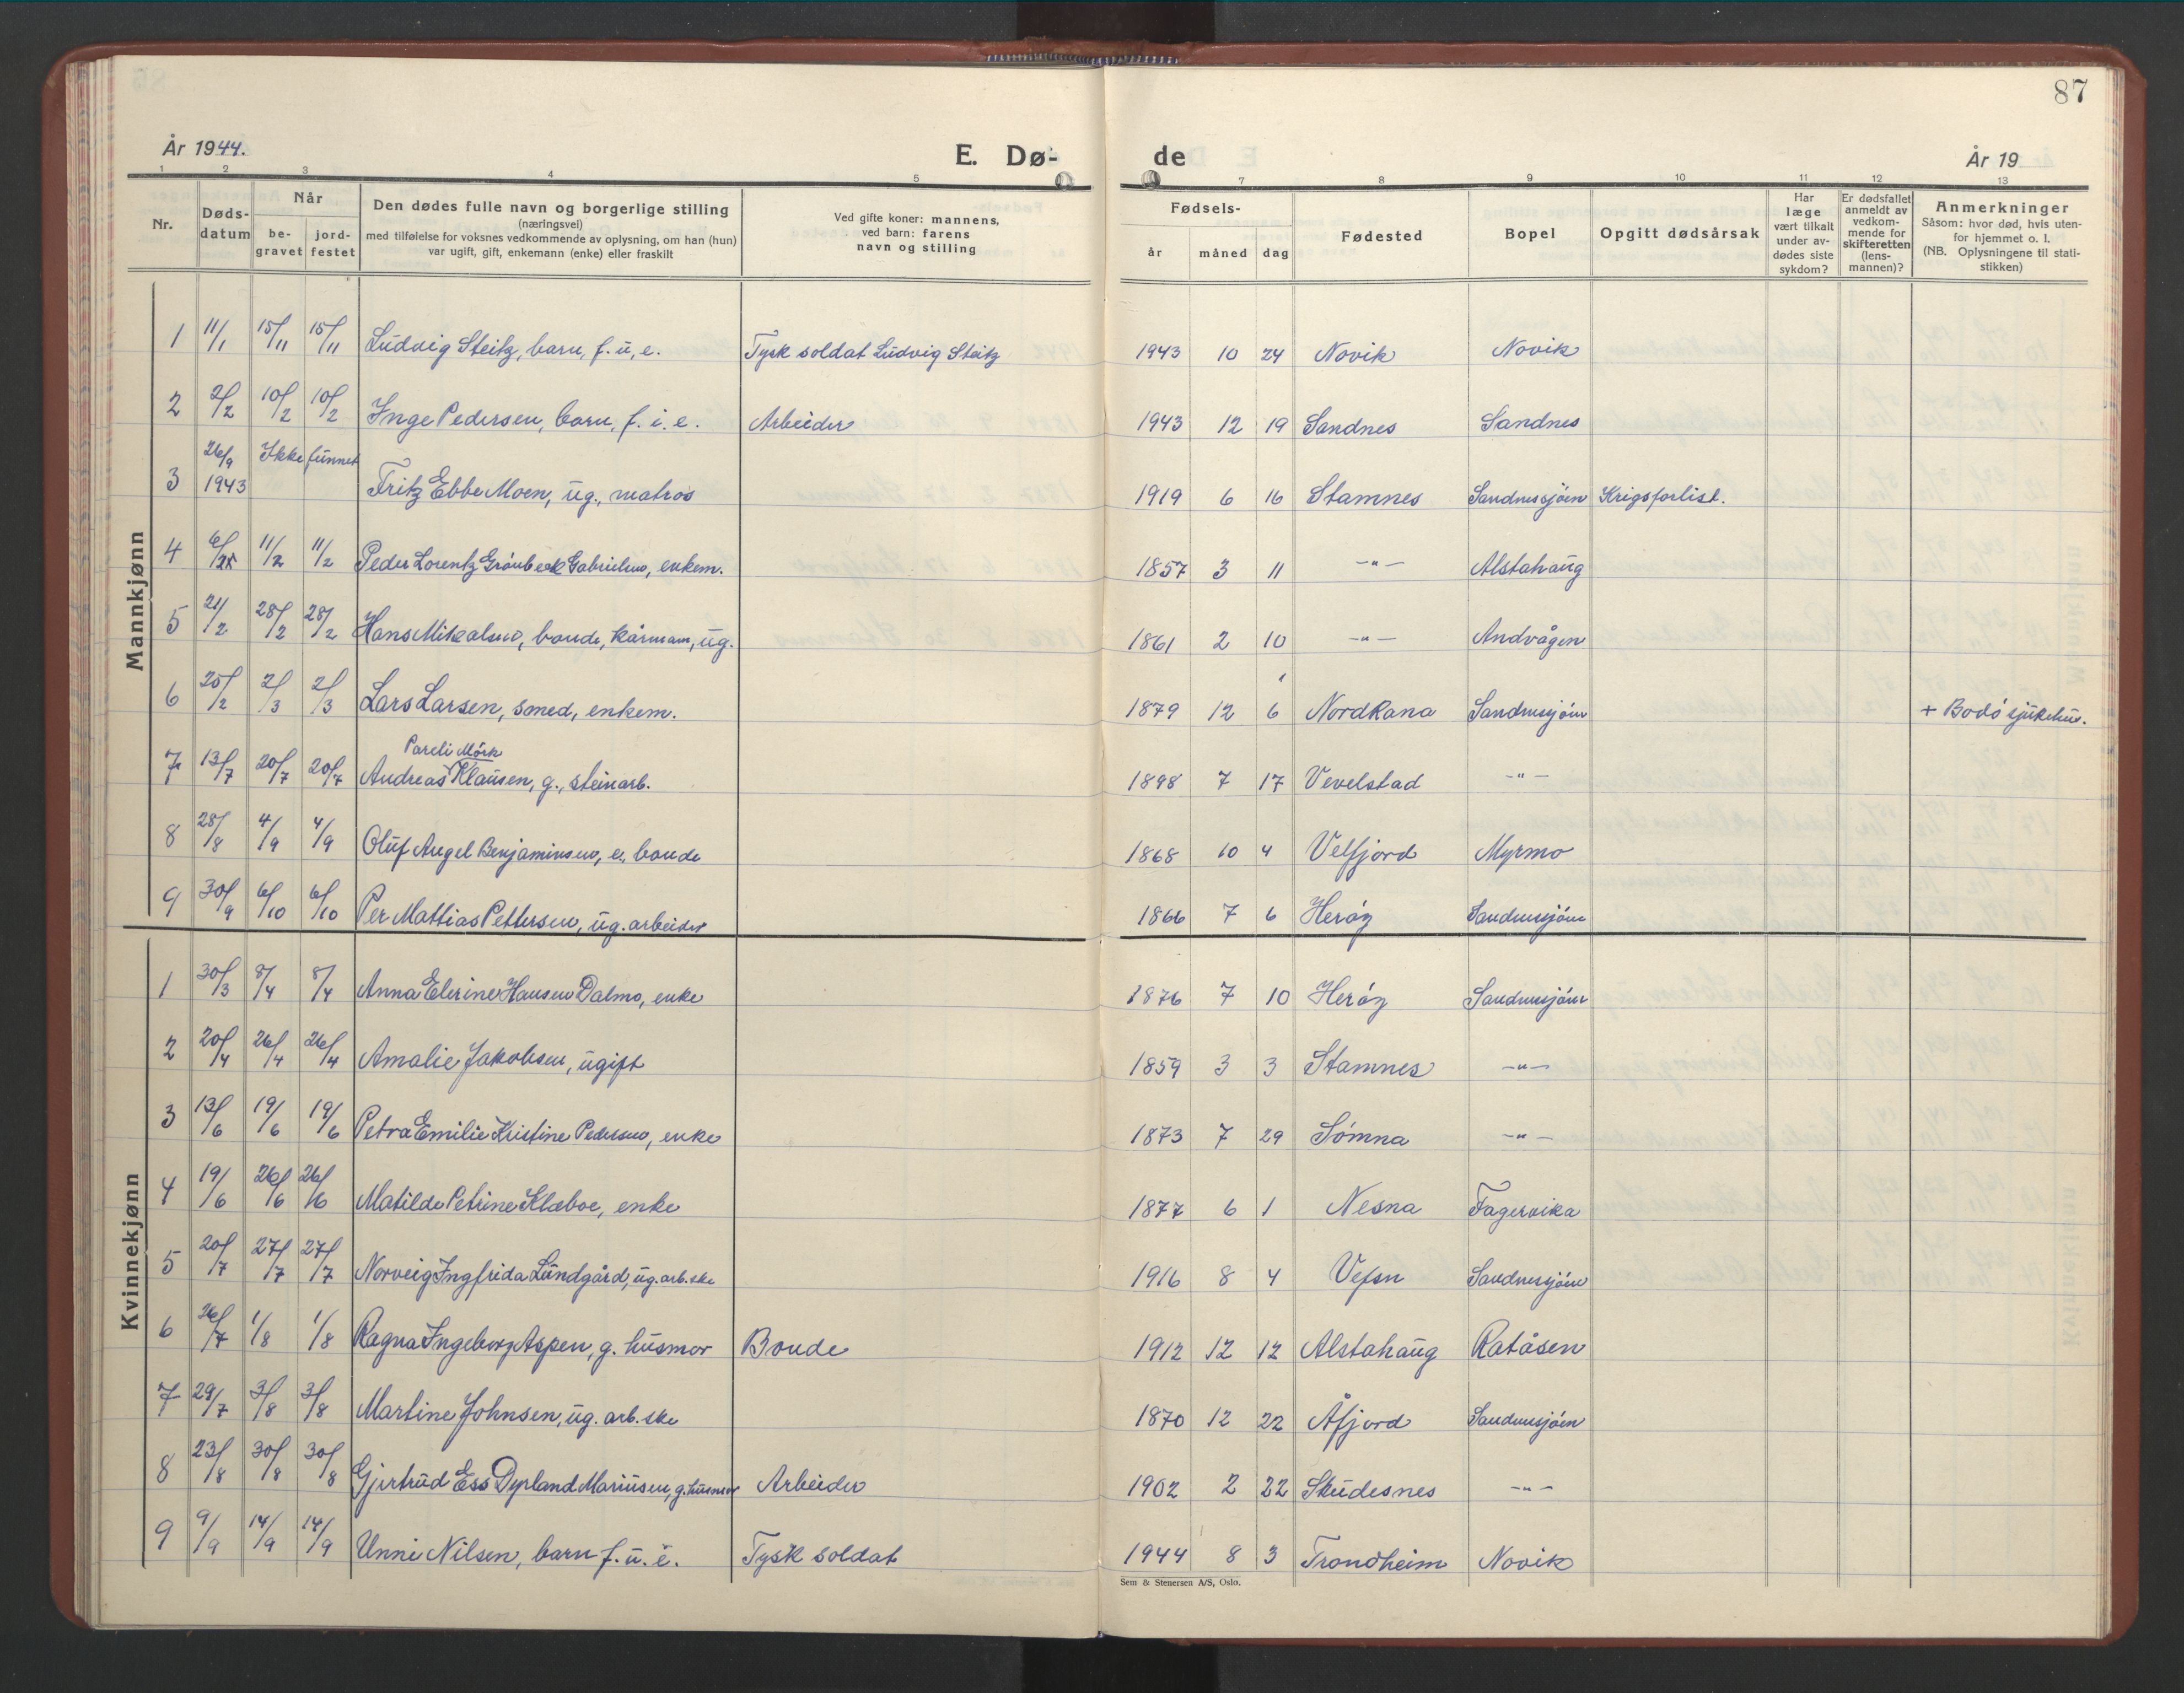 87
År 1944.
E. Dø-
de
År 19
1 2 3 4 5 7 8 9 10 11 12 13
Nr.
Døds-
datum
Når
be-
gravet
jord-
festet
Den dødes fulle navn og borgerlige stilling
(næringsvei)
med tilføielse for voksnes vedkommende av oplysning, om han (hun)
var ugift, gift, enkemann (enke) eller fraskilt
Ved gifte koner: mannens,
ved barn: farens
navn og stilling
Fødsels-
år måned dag
Fødested
Bopel
Opgitt dødsårsak
Har
læge
vært tilkalt
under av-
dødes siste
sykdom?
Er dødsfallet
anmeldt av
vedkom-
mende for
skifteretten
(lens-
mannen)?
Anmerkninger
Såsom: hvor død, hvis uten-
for hjemmet o. l.
(NB. Oplysningene til stati-
stikken)
Mannkjønn
1 11/1 15/11 15/11 Ludvig Steitz, barn, f. u, e. Tysk soldat Ludvig Steitz 1943 10 24 Novik Novik
2 2/2 10/2 10/2 Inge Pedersen, barn, f. i. e. Arbeider 1943 12 19 Sandnes Sandnes
3 26/9 1943 Ikke funnet Fritz Ebbe Moen, ug., matros 1919 6 16 Stamnes Sandnessjøen Krigsforlist.
4 11/2 11/2 Peder Lorentz Grønbeck Gabrielsen, enkem. 1857 3 11 -"- Alstahaug
5 21/2 28/2 28/2 Hans Mikalsen, bonde, kårmann, ug. 1861 2 10 -"- Andvågen
6 25/2 2/3 2/3 Lars Larsen, smed, enkem. 1879 12 6 Nord Rana Sandnessjøen + Bodø sjukehus.
Pareli Mørk
7 13/7 20/7 20/7 Andreas Klausen, g., steinarb. 1898 7 17 Vevelstad -"-
8 28/8 4/9 4/9 Oluf Angel Benjaminsen, e., bonde 1868 10 4 Velfjord Myrmo
9 30/9 6/10 6/10 Per Mattias Pettersen, ug. arbeider 1866 7 6 Herøy Sandnessjøen
Kvinnekjønn
1 30/3 8/4 8/4 Anna Elerine Hansen Dalmo, enke 1876 7 10 Herøy Sandnessjøen
2 20/4 26/4 26/4 Amalie Jakobsen, ugift 1859 3 3 Stamnes -"-
3 13/6 19/6 19/6 Petra Emilie Kristine Pedersen, enke 1873 7 29 Sømna -"-
4 19/6 26/6 26/6 Matilde Petrine Klæboe, enke 1877 6 1 Nesna Fagervika
5 20/7 27/7 27/7 Norveig Ingfrida Lundgård, ug. arb.ske 1916 8 4 Vefsn Sandnessjøen
6 26/7 1/8 1/8 Ragna Ingeborg Aspen, g. husmor Bonde 1912 12 12 Alstahaug Ratåsen
7 29/7 3/8 3/8 Martine Johnsen, ug. arb.ske 1870 12 22 Åfjord Sandnessjøen
8 23/8 30/8 30/8 Gjertrud Ess Dyrland Mariusen, g. husmor Arbeider 1902 2 22 Skudesnes -"-
9 9/9 14/9 14/9 Unni Nilsen, barn f. u. e. Tysk soldat 1944 8 3 Trondheim Novik
Sem & Stenersen A/S, Oslo.